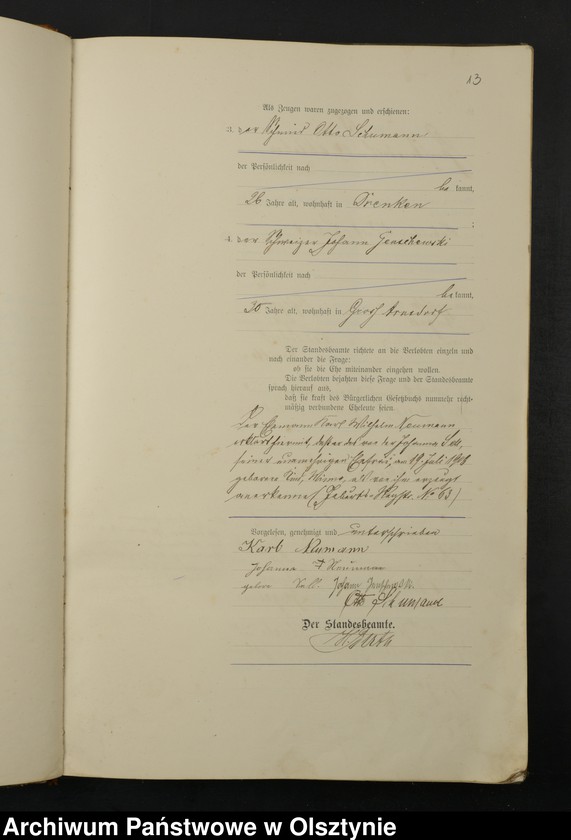 13
Als Zeugen waren zugezogen und erschienen:
3. der Schmied Otto Schumann
der Persönlichkeit nach
be kannt,
26 Jahre alt, wohnhaft in Örenken
;
4. der Schweizer Johann
der Persönlichkeit nach
be kannt,
30 Jahre alt, wohnhaft in Groß Arnsdorf
Der Standesbeamte richtete an die Verlobten einzeln und
nach einander die Frage:
ob sie die Ehe miteinander eingehen wollen.
Die Verlobten bejahten diese Frage und der Standesbeamte
sprach hierauf aus,
daß sie kraft des Bürgerlichen Gesetzbuchs nunmehr recht-
mäßig verbundene Eheleute seien.
Der Ehemann Karl Wilhelm Neumann
erklärt hiermit, daß er das von der Johanna
seiner nunmehrigen Ehefrau, am 19. Juli 1908
geborene Kind, als von ihm erzeugt
anerkenne (Geburts-Regstr. No 63)
Vorgelesen, genehmigt und unterschrieben
Karl Neumann
Johanna Neumann
Johann
Otto Schumann
Der Standesbeamte.
Archiwum Państwowe w Olsztynie